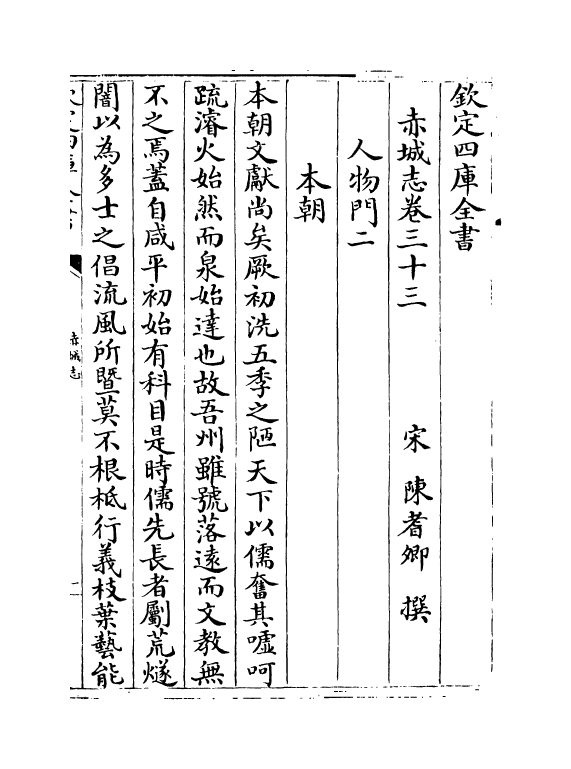 欽定四庫全書
赤城志卷三十三　宋　陳耆卿　撰
人物門二
本朝
本朝文獻尚矣厥初洗五季之陋天下以儒奮其噓呵
疏濬火始然而泉始達也故吾州雖號落逺而文教無
不之焉蓋自咸平初始有科目是時儒先長者劚荒燧
闇以為多士之倡流風所暨莫不根柢行義枝葉藝能
赤城志